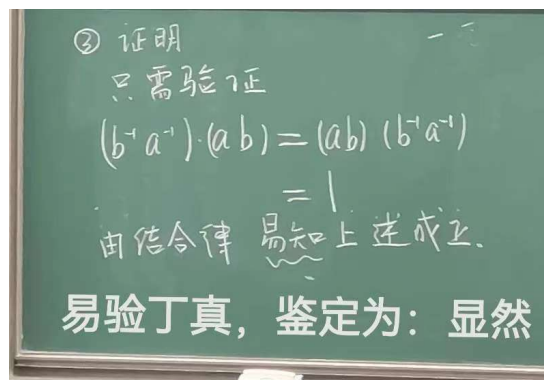 ③ 证明
只需验证
(b⁻¹a⁻¹)·(ab)=(ab)(b⁻¹a⁻¹)
=1
由结合律 易知上述成立.
易验丁真，鉴定为：显然